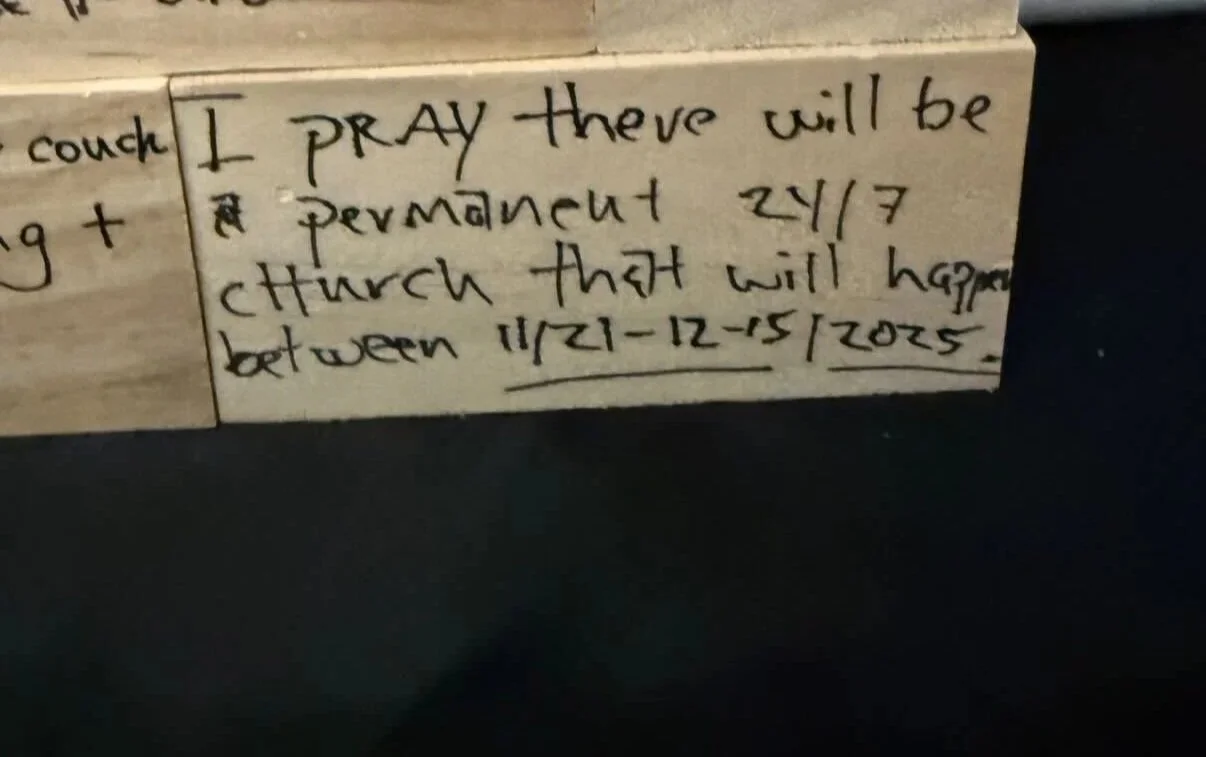 couch
g +
I PRAY there will be
A permanent 24/7
cHurch thAt will happen
between 11/21-12-15/2025.